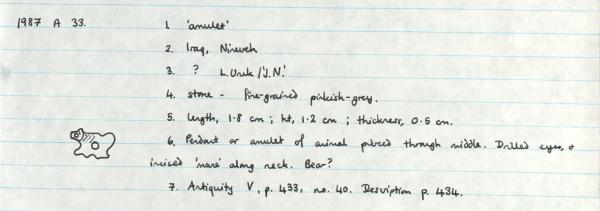 1987 A 33.
1. 'amulet'
2. Iraq, Nineveh
3. ? L. Uruk / 'J.N.'
4. stone - fine-grained pinkish-grey.
5. length, 1.8 cm ; ht, 1.2 cm ; thickness, 0.5 cm.
6. Pendant or amulet of animal pierced through middle. Drilled eyes, &
incised 'mane' along neck. Bear?
7. Antiquity V, p. 433, no. 40. Description p. 434.